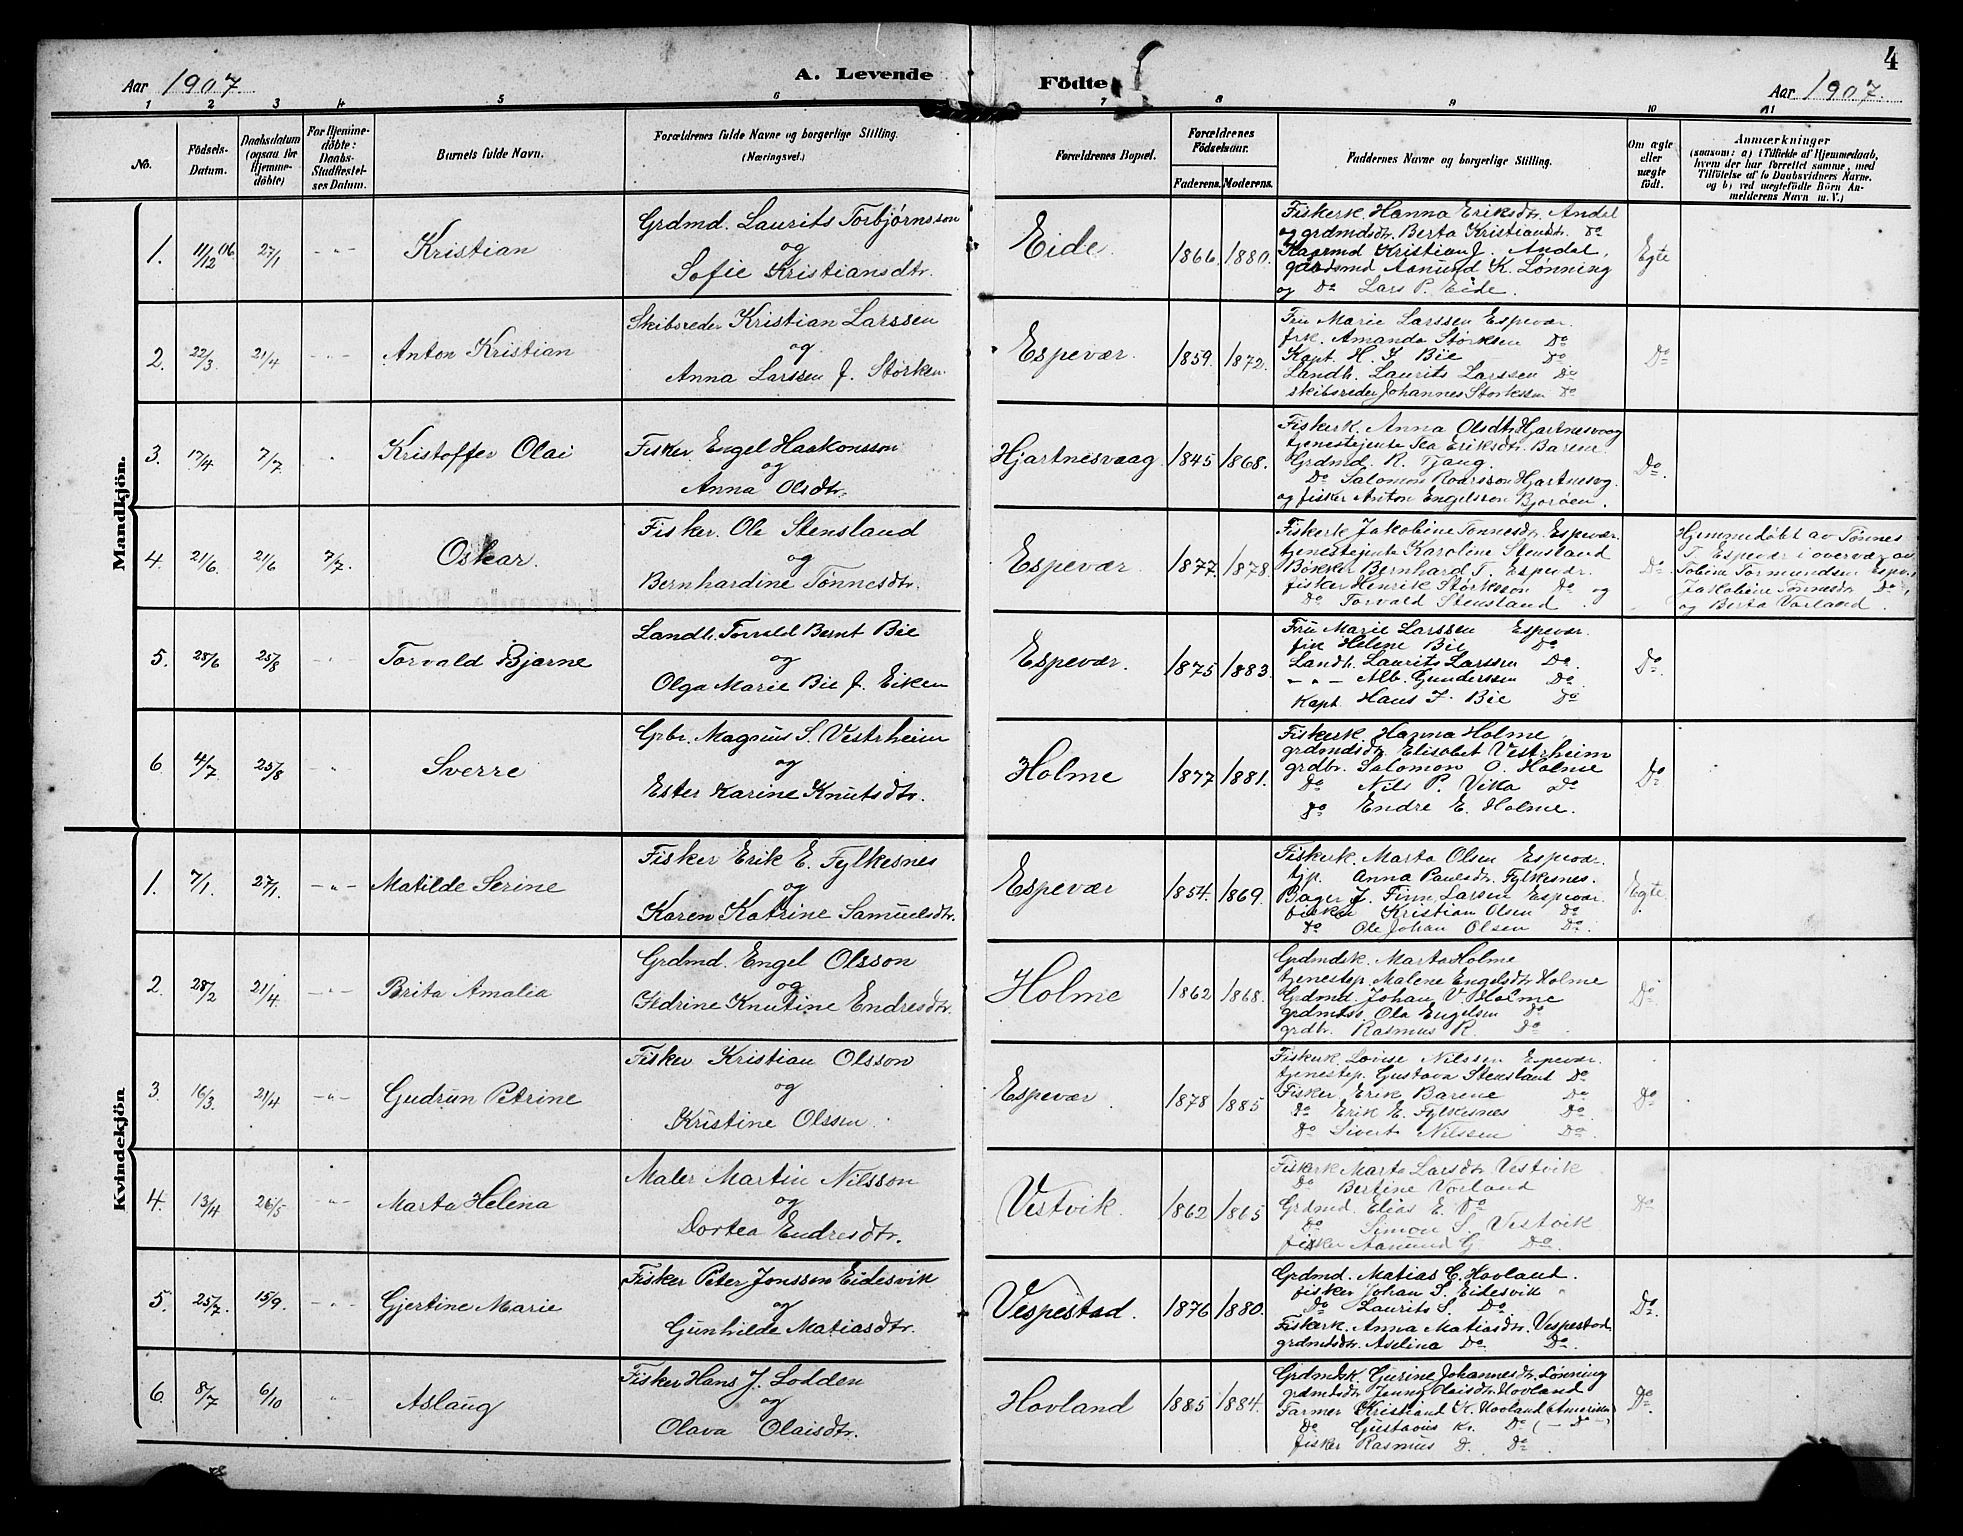 4
Aar 1907.
A. Levende
Födte
Aar 1907.
1 2 3 4 5 6 7 8 9 10 11
No.
Födsels-
Datum.
Daabsdatum
(ogsaa for
Hjemme-
döbte)
For Hjemme-
döbte:
Daabs-
Stadfæstel-
ses Datum.
Barnets fulde Navn.
Forældrenes fulde Navne og borgerlige Stilling.
(Næringsvei.)
Forældrenes Bopæl.
Forældrenes
Födselsaar.
Faderens. Moderens.
Faddernes Navne og borgerlige Stilling.
Om ægte
eller
uægte
födt.
Anmærkninger
(saasom: a) i Tilfælde af Hjemmedaab,
hvem der har forrettet samme, med
Tilföielse af to Daabsvidners Navne.
og b) ved uægtefödte Börn An-
melderens Navn m. V.)
Mandkjön.
1. 11/12 06 27/1 -"- Kristian
Grdmd. Laurits Torbjørnsson
og
Sofie Kristiansdtr.
Eide. 1866. 1880.
Fiskerk. Hanna Eriksdtr. Andal
og grdmdsdtr. Berta Kristiansdtr. Do
Kaarmd Kristian J. Andal,
gaardsmd Aamund K. Lønning
og Do Lars P. Eide.
Egte
2. 22/3 21/4 -"- Anton Kristian
Skibsreder Kristian Larssen
og
Anna Larssen f. Størksen
Espevær. 1859. 1872.
Fru Marie Larssen Espevær.
frk. Amanda Størksen Do
Kapt. H. I. Bie Do
Landh. Laurits Larssen Do
skibsreder Johannes Storkssen Do
Do
3. 17/4 7/7 " Kristoffer Olai
Fisker Engel Haakonsson
og
Anna Olsdtr.
Hjartnesvaag 1845 1868.
Fiskerk. Anna Olsdtr. Hjartnesvaag
tjenestejente Ela Eriksdtr. Barene
Grdmd. R. Tjang.
Do Salomon Roarsson Hjartnesvg
og fisker Anton Engelsson Bjorøen.
Do
4. 21/6. 21/6 7/7. Oskar.
Fisker. Ole Stensland
og
Bernhardine Tønnesdtr.
Espevær. 1877. 1878.
Fiskerk Jakobine Tønnesdtr. Espevær.
tjenestejente Karoline Stensland
Bøkker Bernhard T. Espevær.
fisker Henrik Størksson Do og
Do Torvald Stensland
Do.
Hjemmedøbt av Tønnes
T. Espevær i overvær av
Tobine Tormundsen Espev.
Jakobine Tønnesdtr Do,
og Berta Vorland.
5. 28/6 25/8 -"- Torvald Bjarne
Landh. Torvald Bernt Bie
og
Olga Marie Bie f. Eiken
Espevær. 1875 1883.
Fru Marie Larssen Espevær.
frk Helene Bie Do
Landh. Laurits Larssen Do.
-"- Alb. Gunderssen Do.
Kapt. Hans I. Bie Do
Do
6. 4/7 25/8 " Sverre
Grbr. Magnus S. Vestrheim
og
Ester Karine Knutsdtr.
Holme 1877 1881.
Fiskerk. Hanna Holme.
grdmdsdtr. Elisabet Vestrheim
grdbr. Salomon O. Holme
Do Nils P. Vika Do
Do Endre E. Holme.
Do
Kvindekjön
1. 7/1. 27/1. -"- Matilde Serine
Fisker Erik E. Fylkesnes
og
Karen Katrine Samuelsdtr.
Espevær 1854. 1869.
Fiskerk. Marta Olsen Espevær.
tjp. Anna Paulsdtr. Fylkesnes.
Bager J. Finn Larsen Espevær.
fisker Kristian Olsen Do
Do Ole Johan Olsen Do.
Egte
2. 28/2 21/4. -"- Brita Amalia
Grdmd. Engel Olsson
og
Sidrine Knutine Endresdtr.
Holme 1862 1868.
Grdmdsk. Marta Holme
tjenestep. Malene Engelsdtr. Holme
Grdmd. Johan V. Holme
grdmdss. Ola Engelsen Do
grdbr. Rasmus R. Do.
Do
3. 16/3. 21/4 -"- Gudrun Petrine
Fisker Kristian Olsson
og
Kristine Olssen.
Espevær. 1878 1885
Fiskerk Lovise Nilssen Espevær.
tjenestep. Gustava Stensland Do
Fisker Erik Barene Do
Do Erik E. Fylkesnes Do
Do Sivert Nilssen Do.
Do
4. 13/4 26/5 -"- Marta Helena
Maler Martin Nilsson
og
Dortea Endresdtr.
Vestvik. 1862 1865
Fiskerk Marta Larsdtr. Vestvik
Do Bertine Vorland
Grdmd. Elias E. Do
Do Simon S. Vestvik
fisker Aamund G Do.
Do
5. 25/7. 15/9. -"- Gjertine Marie
Fisker Peter Jonsson Eidesvik
og
Gunhilde Matiasdtr.
Vespestad. 1876 1880.
Grdmd. Matias C. Hovland.
fisker Johan S. Eidesvik "
Do Laurits S. Do
Fiskerk. Anna Matiasdtr. Vespestad
grdmdsdtr. Aselina Do Do.
Do.
6. 8/7 6/10 " Aslaug
Fisker Hans J. Lodden
og
Olava Olaisdtr.
Hovland 1885 1884.
Grdmdsk. Gurine Johannesdtr. Lønning
grdmdsdtr. Jenny Olaisdtr. Hovland
Farmer Kristian K. Hovland (Amerika)
Do Gustavus Kr. Do (-Do-)
fisker Rasmus D. Do.
Do.